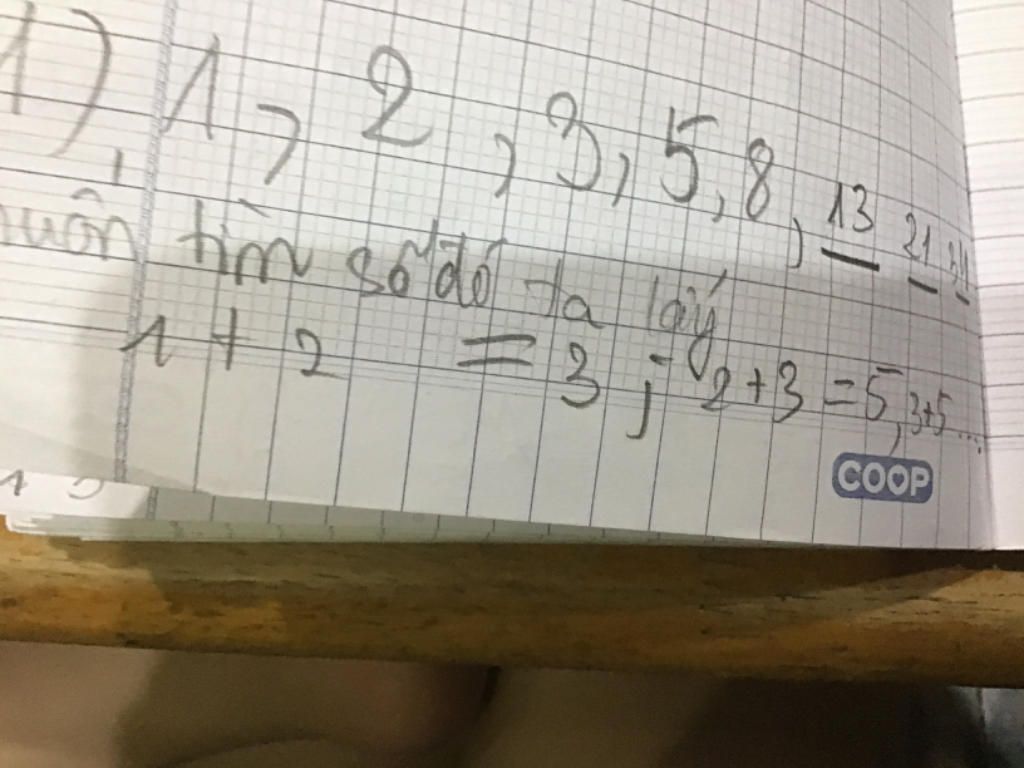 1), 1, 2, 3, 5, 8, 13 21 34
muốn tìm số đó ta lấy
1 + 2 = 3 ; 2+3 = 5, 3+5 ...
COOP